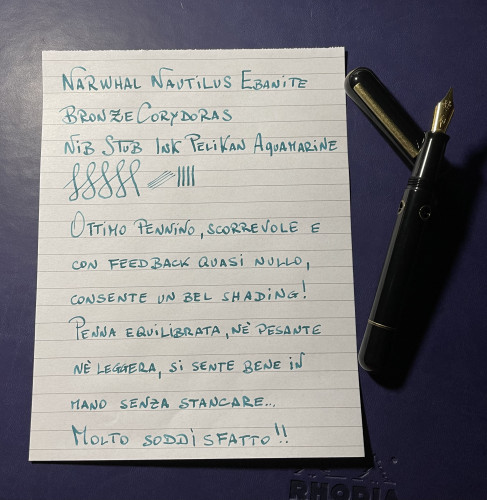 Narwhal Nautilus Ebanite
Bronze Corydoras
Nib Stub Ink Pelikan Aquamarine
Ottimo pennino, scorrevole e
con feedback quasi nullo,
consente un bel shading!
Penna equilibrata, nè pesante
nè leggera, si sente bene in
mano senza stancare...
Molto soddisfatto!!
RHODIA